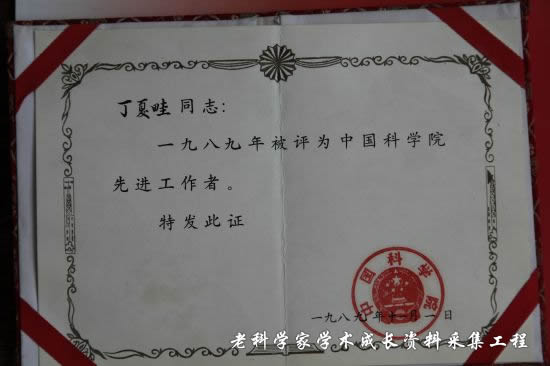 丁夏畦同志：
一九八九年被评为中国科学院
先进工作者。
特发此证
中国科学院
一九八九年十一月一日
老科学家学术成长资料采集工程